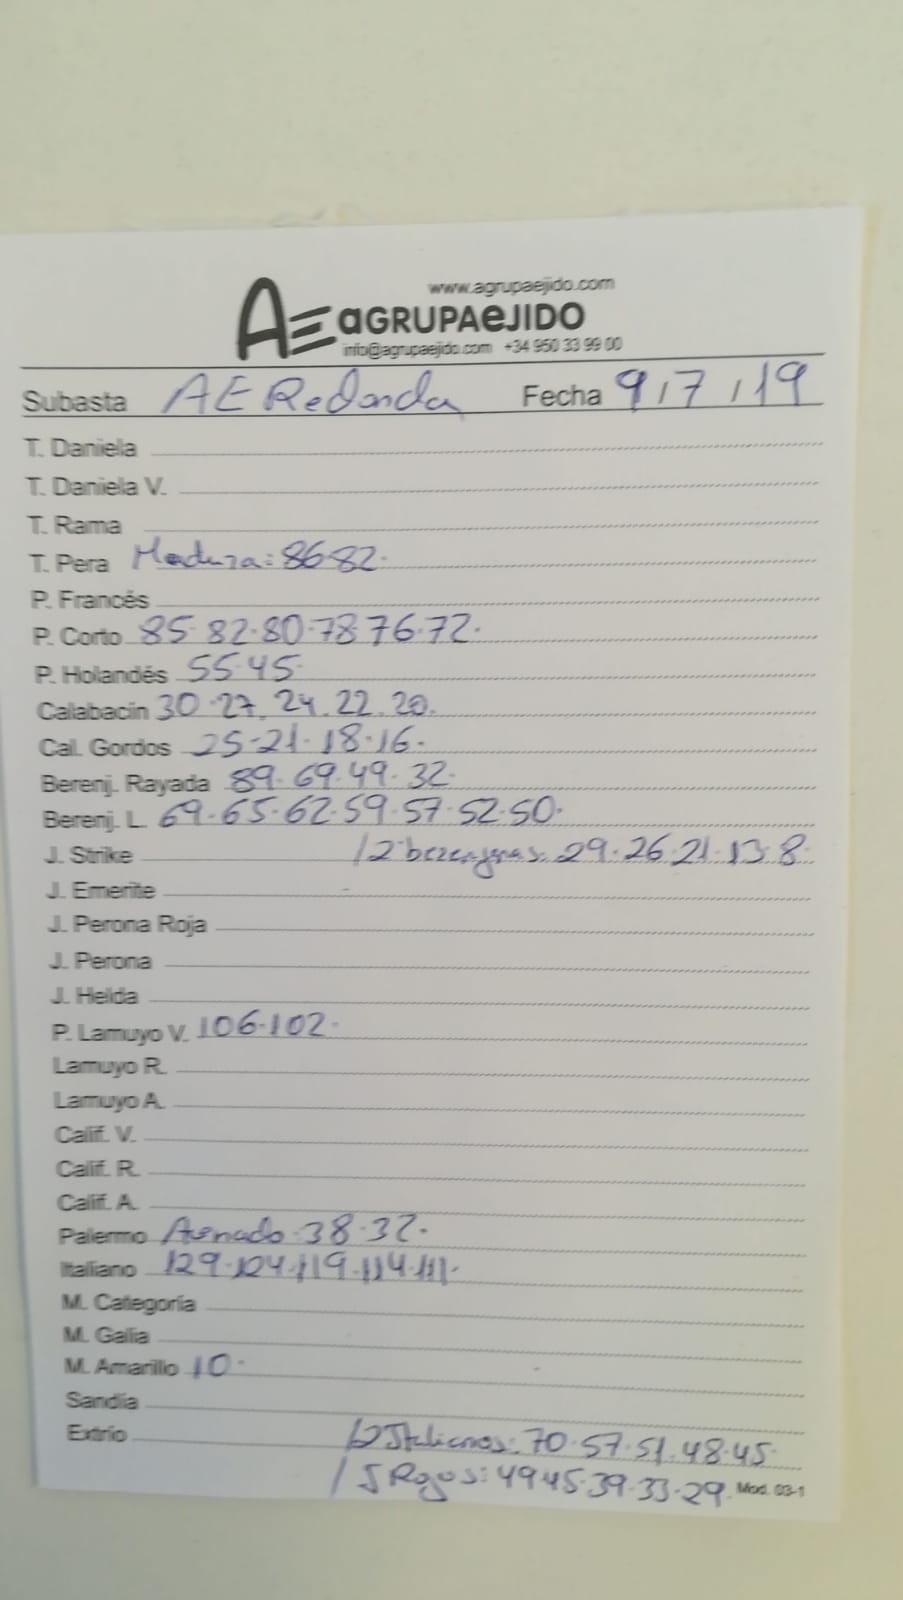 www.agrupaejido.com
AE aGRUPAeJIDO
info@agrupaejido.com +34 950 33 99 00
Subasta AE Redonda Fecha 9/7/19
T. Daniela
T. Daniela V.
T. Rama
T. Pera Madura: 86·82·
P. Francés
P. Corto 85·82·80·78·76·72·
P. Holandés 55·45·
Calabacín 30·27.24.22.20.
Cal. Gordos 25-21·18·16·
Berenj. Rayada 89·69·49·32·
Berenj. L. 69·65·62·59·57·52·50·
J. Strike /2 berenjenas: 29·26·21·13·8·
J. Emerite
J. Perona Roja
J. Perona
J. Helda
P. Lamuyo V. 106·102·
Lamuyo R.
Lamuyo A.
Calif. V.
Calif. R.
Calif. A.
Palermo Asurado 38·32·
Italiano 129·124·119·114·111·
M. Categoría
M. Galia
M. Amarillo 10·
Sandía
Extrío /2 Italianos: 70·57·51·48·45·
/J Rojos: 49·45·39·33·29. Mod. 03-1